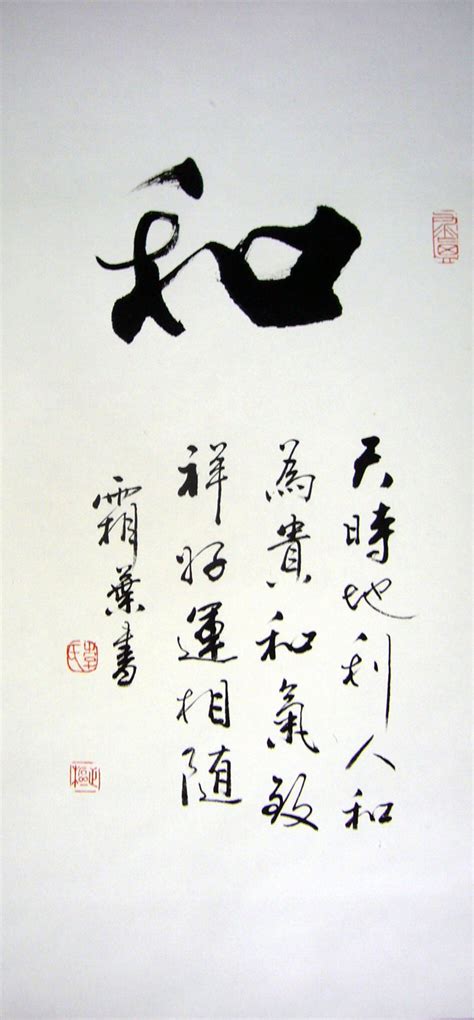 和
天時地利人和
為貴和氣致
祥好運相随
霜葉書